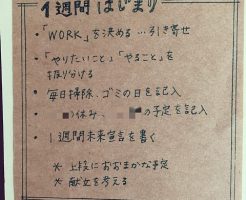 1週間はじまり
・「WORK」を決める…引き寄せ
・「やりたいこと」「やること」を
振り分ける
・毎日掃除、ゴミの日を記入
・の休み、の予定を記入
・1週間未来宣言を書く
* 上段におおまかな予定
* 献立を考える